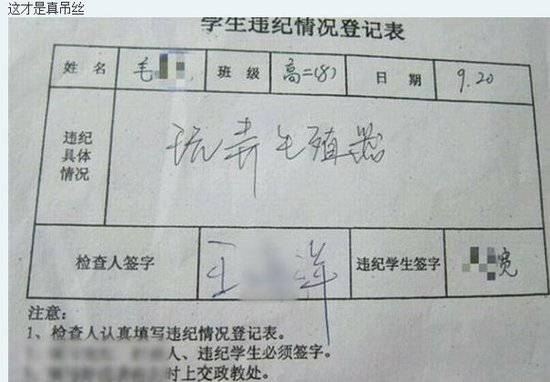 这才是真吊丝
学生违纪情况登记表
姓名 毛 班级 高二(8) 日期 9.20
违纪具体情况 玩弄生殖器
检查人签字 王 洋 违纪学生签字 宽
注意：
1、检查人认真填写违纪情况登记表。
人、违纪学生必须签字。
时上交政教处。